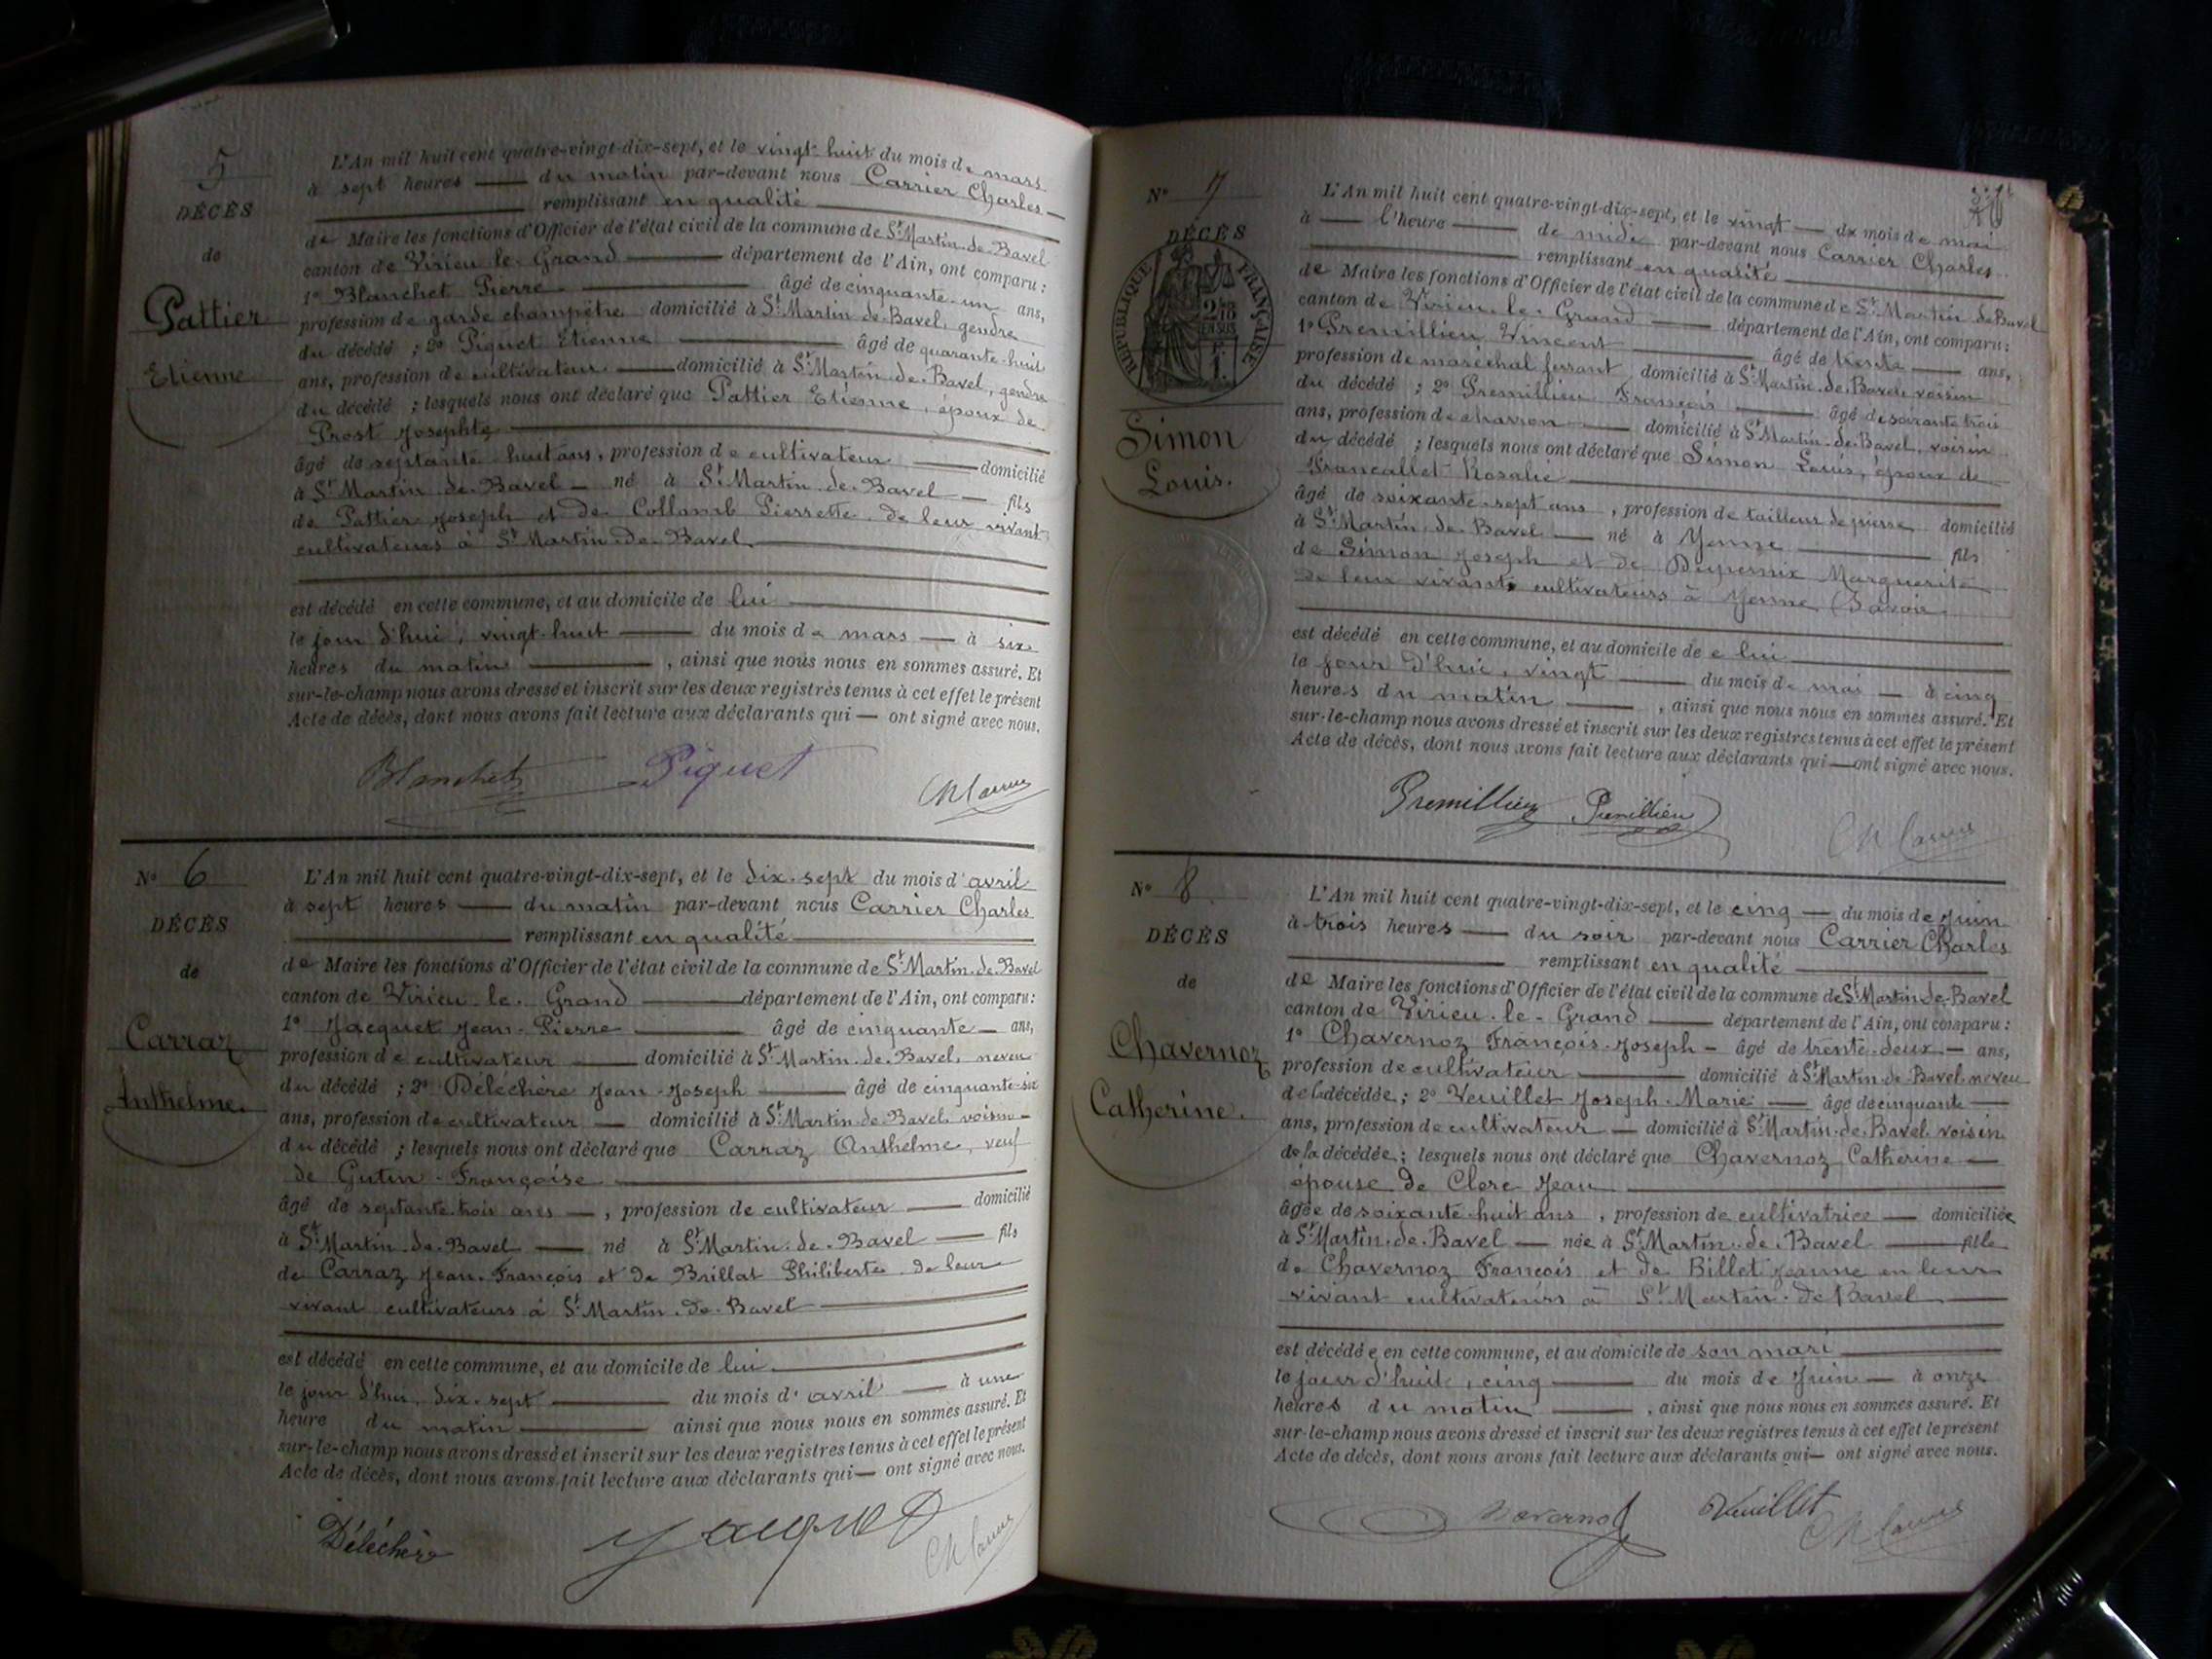 5
DÉCÈS
de
Pattier
Etienne
L'An mil huit cent quatre-vingt-dix-sept, et le vingt-huit du mois de mars
à sept heures — du matin par-devant nous Carrier Charles —
remplissant en qualité
de Maire les fonctions d'Officier de l'état civil de la commune de St Martin-de-Bavel
canton de Virieu-le-Grand — département de l'Ain, ont comparu :
1° Blanchet Pierre — âgé de cinquante-un ans,
profession de garde champêtre domicilié à St Martin-de-Bavel, gendre
du décédé ; 2° Piquet Etienne — âgé de quarante-huit
ans, profession de cultivateur — domicilié à St Martin-de-Bavel, gendre
du décédé ; lesquels nous ont déclaré que Pattier Etienne, époux de
Prost Josephte
âgé de septante-huit ans, profession de cultivateur — domicilié
à St Martin-de-Bavel — né à St Martin-de-Bavel — fils
de Pattier Joseph et de Collomb Pierrette, de leur vivant
cultivateurs à St Martin-de-Bavel
est décédé en cette commune, et au domicile de lui
le jour d'hui, vingt-huit — du mois de mars — à six
heures du matin — , ainsi que nous nous en sommes assuré. Et
sur-le-champ nous avons dressé et inscrit sur les deux registres tenus à cet effet le présent
Acte de décès, dont nous avons fait lecture aux déclarants qui — ont signé avec nous.
Blanchet Piquet
N° 6
DÉCÈS
de
Carraz
Anthelme
L'An mil huit cent quatre-vingt-dix-sept, et le dix-sept du mois d'avril
à sept heures — du matin par-devant nous Carrier Charles
remplissant en qualité
de Maire les fonctions d'Officier de l'état civil de la commune de St Martin-de-Bavel
canton de Virieu-le-Grand — département de l'Ain, ont comparu :
1° Jacquet Jean-Pierre — âgé de cinquante — ans,
profession de cultivateur — domicilié à St Martin-de-Bavel, neveu
du décédé ; 2° Délechère Jean-Joseph — âgé de cinquante-six
ans, profession de cultivateur — domicilié à St Martin-de-Bavel, voisin
du décédé ; lesquels nous ont déclaré que Carraz Anthelme, veuf
de Gutin Françoise
âgé de septante-trois ans — , profession de cultivateur — domicilié
à St Martin-de-Bavel — né à St Martin-de-Bavel — fils
de Carraz Jean-François et de Brillat Philiberte, de leur
vivant cultivateurs à St Martin-de-Bavel
est décédé en cette commune, et au domicile de lui
le jour d'hui, dix-sept — du mois d'avril — à une
heure du matin — ainsi que nous nous en sommes assuré. Et
sur-le-champ nous avons dressé et inscrit sur les deux registres tenus à cet effet le présent
Acte de décès, dont nous avons fait lecture aux déclarants qui — ont signé avec nous.
Déléchère Jacquet
N° 7
DÉCÈS
RÉPUBLIQUE FRANÇAISE
Simon
Louis.
L'An mil huit cent quatre-vingt-dix-sept, et le vingt — du mois de mai
à — l'heure — de midi par-devant nous Carrier Charles
remplissant en qualité
de Maire les fonctions d'Officier de l'état civil de la commune de St Martin-de-Bavel
canton de Virieu-le-Grand — département de l'Ain, ont comparu :
1° Premillieu Vincent — âgé de trente — ans,
profession de maréchal ferrant, domicilié à St Martin-de-Bavel, voisin
du décédé ; 2° Premillieu François — âgé de soixante-trois
ans, profession de charron — domicilié à St Martin-de-Bavel, voisin
du décédé ; lesquels nous ont déclaré que Simon Louis, époux de
Francallet Rosalie
âgé de soixante-sept ans, profession de tailleur de pierre domicilié
à St Martin-de-Bavel — né à Yenne — fils
de Simon Joseph et de Marguerite
de leur vivants cultivateurs à Yenne (Savoie
est décédé en cette commune, et au domicile de e lui
le jour d'hui, vingt — du mois de mai — à cinq
heures du matin — , ainsi que nous nous en sommes assuré. Et
sur-le-champ nous avons dressé et inscrit sur les deux registres tenus à cet effet le présent
Acte de décès, dont nous avons fait lecture aux déclarants qui — ont signé avec nous.
Premillieu Premillieu
N° 8
DÉCÈS
de
Chavernoz
Catherine.
L'An mil huit cent quatre-vingt-dix-sept, et le cinq — du mois de Juin
à trois heures — du soir par-devant nous Carrier Charles
remplissant en qualité
de Maire les fonctions d'Officier de l'état civil de la commune de St Martin-de-Bavel
canton de Virieu-le-Grand — département de l'Ain, ont comparu :
1° Chavernoz François-Joseph — âgé de trente-deux — ans,
profession de cultivateur — domicilié à St Martin-de-Bavel, neveu
de la décédée ; 2° Veuillet Joseph-Marie — âgé de cinquante —
ans, profession de cultivateur — domicilié à St Martin-de-Bavel, voisin
de la décédée ; lesquels nous ont déclaré que Chavernoz Catherine —
épouse de Clerc Jean
âgée de soixante-huit ans, profession de cultivatrice — domiciliée
à St Martin-de-Bavel — née à St Martin-de-Bavel — fille
de Chavernoz François et de Billet Jeanne en leur
vivant cultivateurs à St Martin-de-Bavel
est décédée en cette commune, et au domicile de son mari
le jour d'huit, cinq — du mois de Juin — à onze
heures du matin — , ainsi que nous nous en sommes assuré. Et
sur-le-champ nous avons dressé et inscrit sur les deux registres tenus à cet effet le présent
Acte de décès, dont nous avons fait lecture aux déclarants qui — ont signé avec nous.
Veuillet